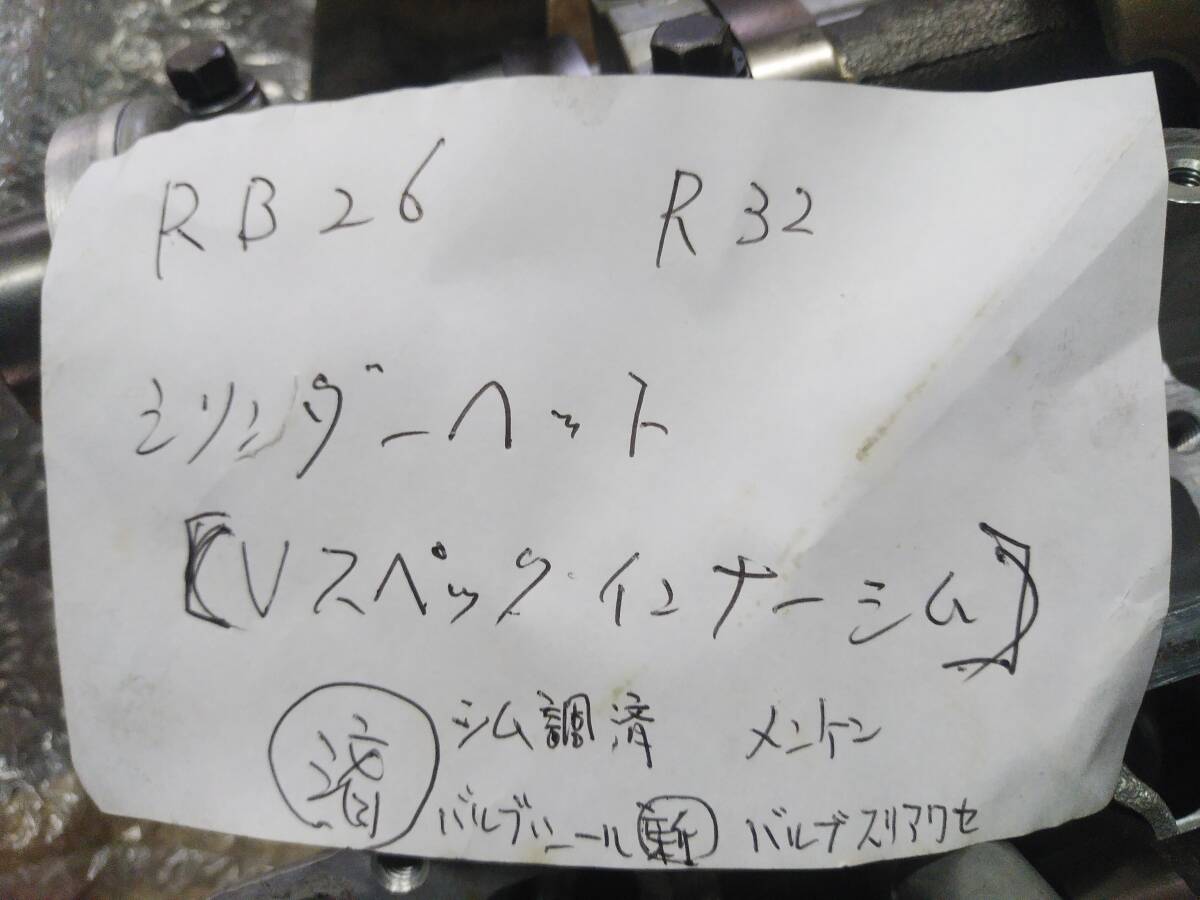 RB26 R32
シリンダーヘット
【Vスペック・インナーシム】
済 シム調済 メントン
バルブシール 新 バルブスリアワセ